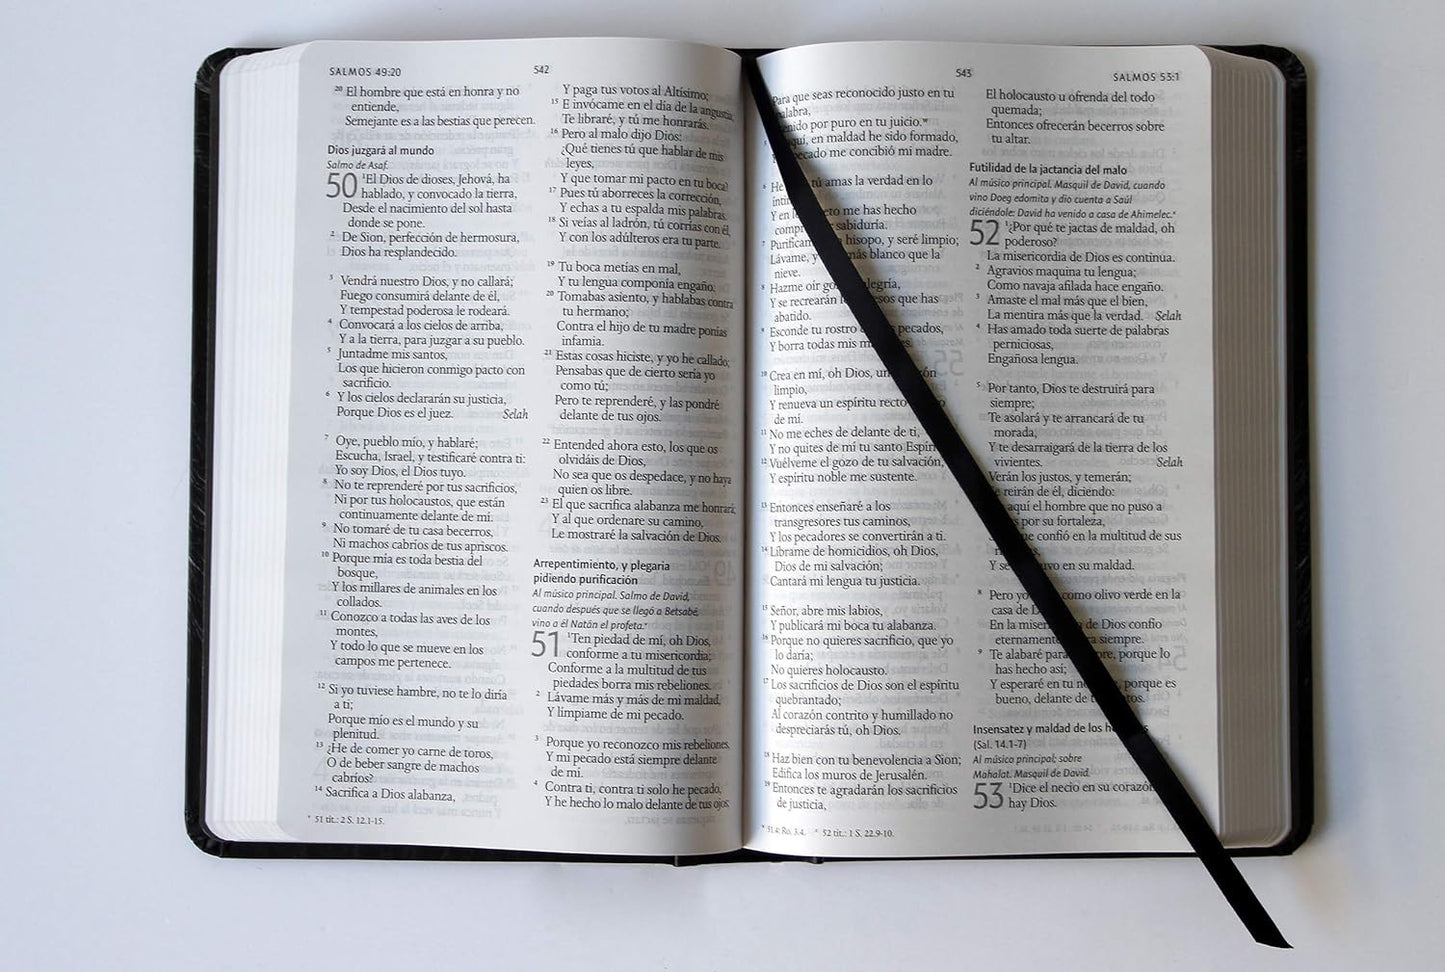 SALMOS 49:20
542
20 El hombre que está en honra y no
entiende,
Semejante es a las bestias que perecen.
Dios juzgará al mundo
Salmo de Asaf.
50 1El Dios de dioses, Jehová, ha
hablado, y convocado la tierra,
Desde el nacimiento del sol hasta
donde se pone.
2 De Sion, perfección de hermosura,
Dios ha resplandecido.
3 Vendrá nuestro Dios, y no callará;
Fuego consumirá delante de él,
Y tempestad poderosa le rodeará.
4 Convocará a los cielos de arriba,
Y a la tierra, para juzgar a su pueblo.
5 Juntadme mis santos,
Los que hicieron conmigo pacto con
sacrificio.
6 Y los cielos declararán su justicia,
Porque Dios es el juez. Selah
7 Oye, pueblo mío, y hablaré;
Escucha, Israel, y testificaré contra ti:
Yo soy Dios, el Dios tuyo.
8 No te reprenderé por tus sacrificios,
Ni por tus holocaustos, que están
continuamente delante de mí.
9 No tomaré de tu casa becerros,
Ni machos cabríos de tus apriscos.
10 Porque mía es toda bestia del
bosque,
Y los millares de animales en los
collados.
11 Conozco a todas las aves de los
montes,
Y todo lo que se mueve en los
campos me pertenece.
12 Si yo tuviese hambre, no te lo diría
a ti;
Porque mío es el mundo y su
plenitud.
13 ¿He de comer yo carne de toros,
O de beber sangre de machos
cabríos?
14 Sacrifica a Dios alabanza,
* 51 tít.: 2 S. 12.1-15.
Y paga tus votos al Altísimo;
15 E invócame en el día de la angustia;
Te libraré, y tú me honrarás.
16 Pero al malo dijo Dios:
¿Qué tienes tú que hablar de mis
leyes,
Y que tomar mi pacto en tu boca?
17 Pues tú aborreces la corrección,
Y echas a tu espalda mis palabras.
18 Si veías al ladrón, tú corrías con él,
Y con los adúlteros era tu parte.
19 Tu boca metías en mal,
Y tu lengua componía engaño.
20 Tomabas asiento, y hablabas contra
tu hermano;
Contra el hijo de tu madre ponías
infamia.
21 Estas cosas hiciste, y yo he callado;
Pensabas que de cierto sería yo
como tú;
Pero te reprenderé, y las pondré
delante de tus ojos.
22 Entended ahora esto, los que os
olvidáis de Dios,
No sea que os despedace, y no haya
quien os libre.
23 El que sacrifica alabanza me honrará;
Y al que ordenare su camino,
Le mostraré la salvación de Dios.
Arrepentimiento, y plegaria
pidiendo purificación
Al músico principal. Salmo de David,
cuando después que se llegó a Betsabé,
vino a él Natán el profeta.*
51 1Ten piedad de mí, oh Dios,
conforme a tu misericordia;
Conforme a la multitud de tus
piedades borra mis rebeliones.
2 Lávame más y más de mi maldad,
Y límpiame de mi pecado.
3 Porque yo reconozco mis rebeliones,
Y mi pecado está siempre delante
de mí.
4 Contra ti, contra ti solo he pecado,
Y he hecho lo malo delante de tus ojos;
543
SALMOS 53:1
Para que seas reconocido justo en tu
palabra,
por puro en tu juicio.*
en maldad he sido formado,
me concibió mi madre.
6 tú amas la verdad en lo
Y en me has hecho
sabiduría.
7 hisopo, y seré limpio;
Lávame, y más blanco que la
nieve.
8 Hazme oír
Y se recrearán que has
abatido.
9 Esconde tu rostro pecados,
Y borra todas mis
10 Crea en mí, oh Dios,
limpio,
Y renueva un espíritu recto
de mí.
11 No me eches de delante de ti,
Y no quites de mí tu santo
12 Vuélveme el gozo de tu salvación,
Y espíritu noble me sustente.
13 Entonces enseñaré a los
transgresores tus caminos,
Y los pecadores se convertirán a ti.
14 Líbrame de homicidios, oh Dios,
Dios de mi salvación;
Cantará mi lengua tu justicia.
15 Señor, abre mis labios,
Y publicará mi boca tu alabanza.
16 Porque no quieres sacrificio, que yo
lo daría;
No quieres holocausto.
17 Los sacrificios de Dios son el espíritu
quebrantado;
Al corazón contrito y humillado no
despreciarás tú, oh Dios.
18 Haz bien con tu benevolencia a Sion;
Edifica los muros de Jerusalén.
19 Entonces te agradarán los sacrificios
de justicia,
* 51.4: Ro. 3.4. * 52 tít.: 1 S. 22.9-10.
El holocausto u ofrenda del todo
quemada;
Entonces ofrecerán becerros sobre
tu altar.
Futilidad de la jactancia del malo
Al músico principal. Masquil de David, cuando
vino Doeg edomita y dio cuenta a Saúl
diciéndole: David ha venido a casa de Ahimelec.*
52 1¿Por qué te jactas de maldad, oh
poderoso?
La misericordia de Dios es continua.
2 Agravios maquina tu lengua;
Como navaja afilada hace engaño.
3 Amaste el mal más que el bien,
La mentira más que la verdad. Selah
4 Has amado toda suerte de palabras
perniciosas,
Engañosa lengua.
5 Por tanto, Dios te destruirá para
siempre;
Te asolará y te arrancará de tu
morada,
Y te desarraigará de la tierra de los
vivientes. Selah
Verán los justos, y temerán;
reirán de él, diciendo:
aquí el hombre que no puso a
por su fortaleza,
que confió en la multitud de sus
Y se en su maldad.
8 Pero yo como olivo verde en la
casa de
En la de Dios confío
eternamente siempre.
9 Te alabaré para porque lo
has hecho así;
Y esperaré en tu porque es
bueno, delante de
Insensatez y maldad de los
(Sal. 14.1-7)
Al músico principal; sobre
Mahalat. Masquil de David.
53 1Dice el necio en su corazón:
hay Dios.